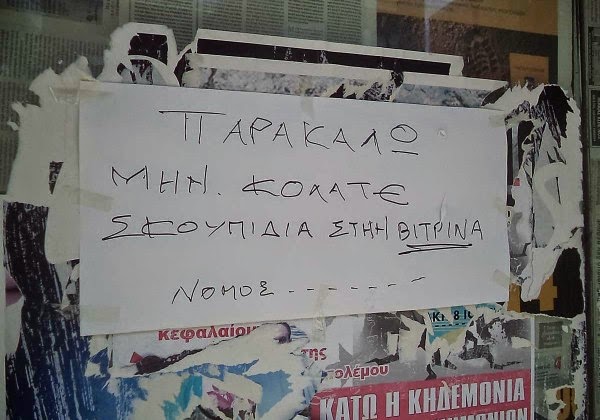 ΠΑΡΑΚΑΛΩ
ΜΗΝ. ΚΟΛΑΤΕ
ΣΚΟΥΠΙΔΙΑ ΣΤΗΗ ΒΙΤΡΙΝΑ
ΝΟΜΟΣ - - - - - - -
κεφαλαίου
της
ολέμου
ΚΑΤΩ Η ΚΗΔΕΜΟΝΙΑ